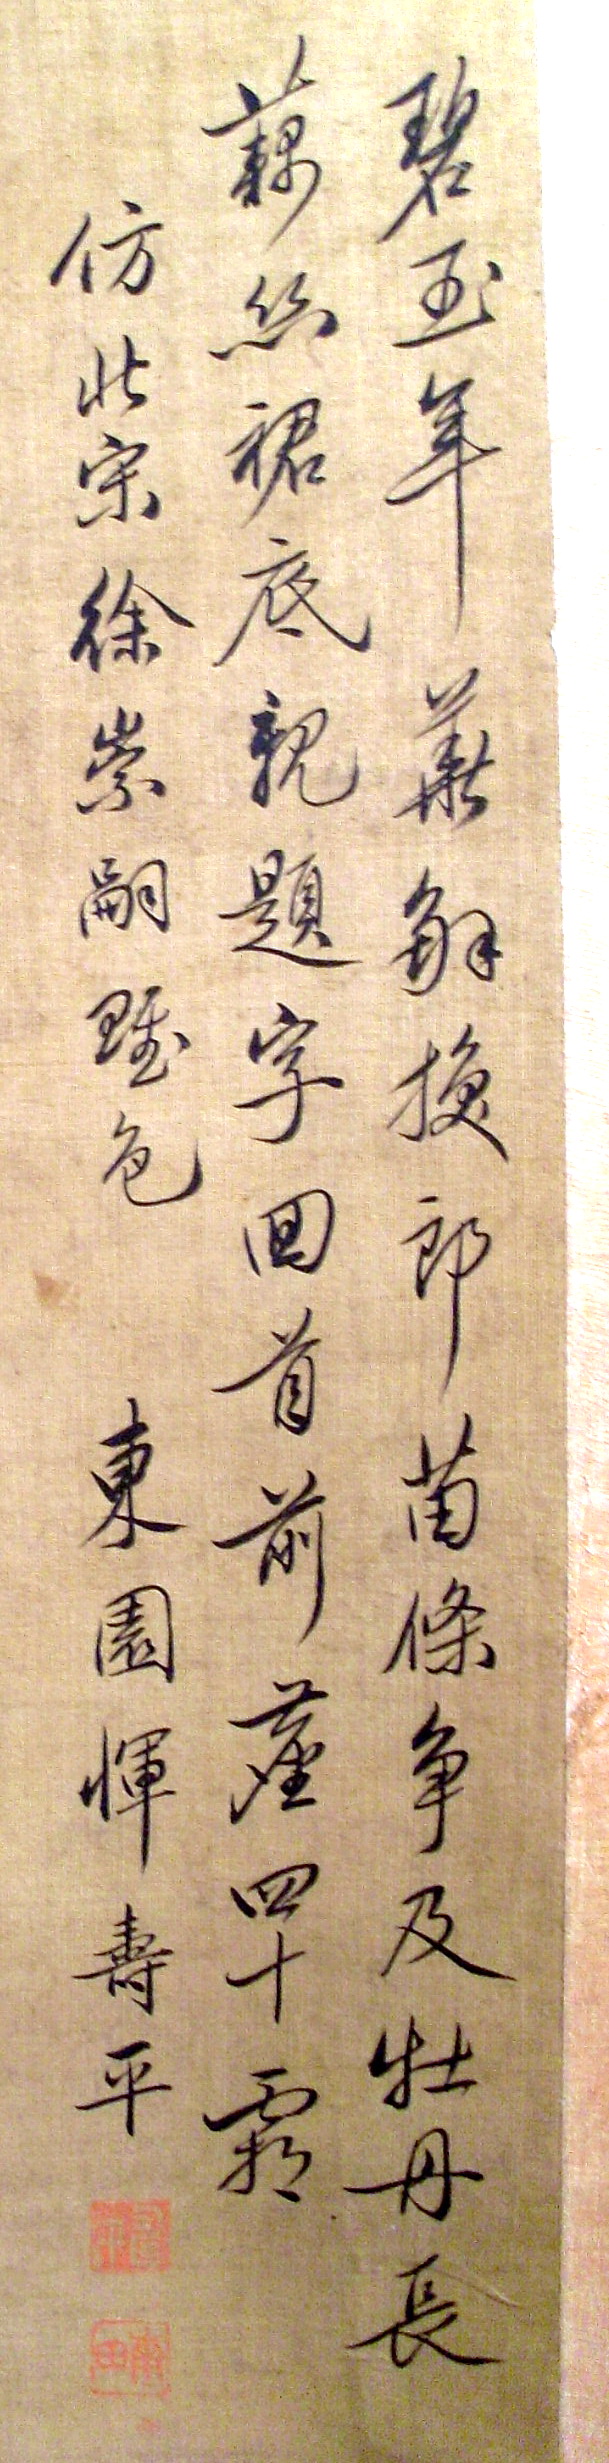 碧玉年華解換郎苗條争及牡丹長
藕絲裙底親題字回首前塵四十霜
仿北宋徐崇嗣設色　東園惲壽平